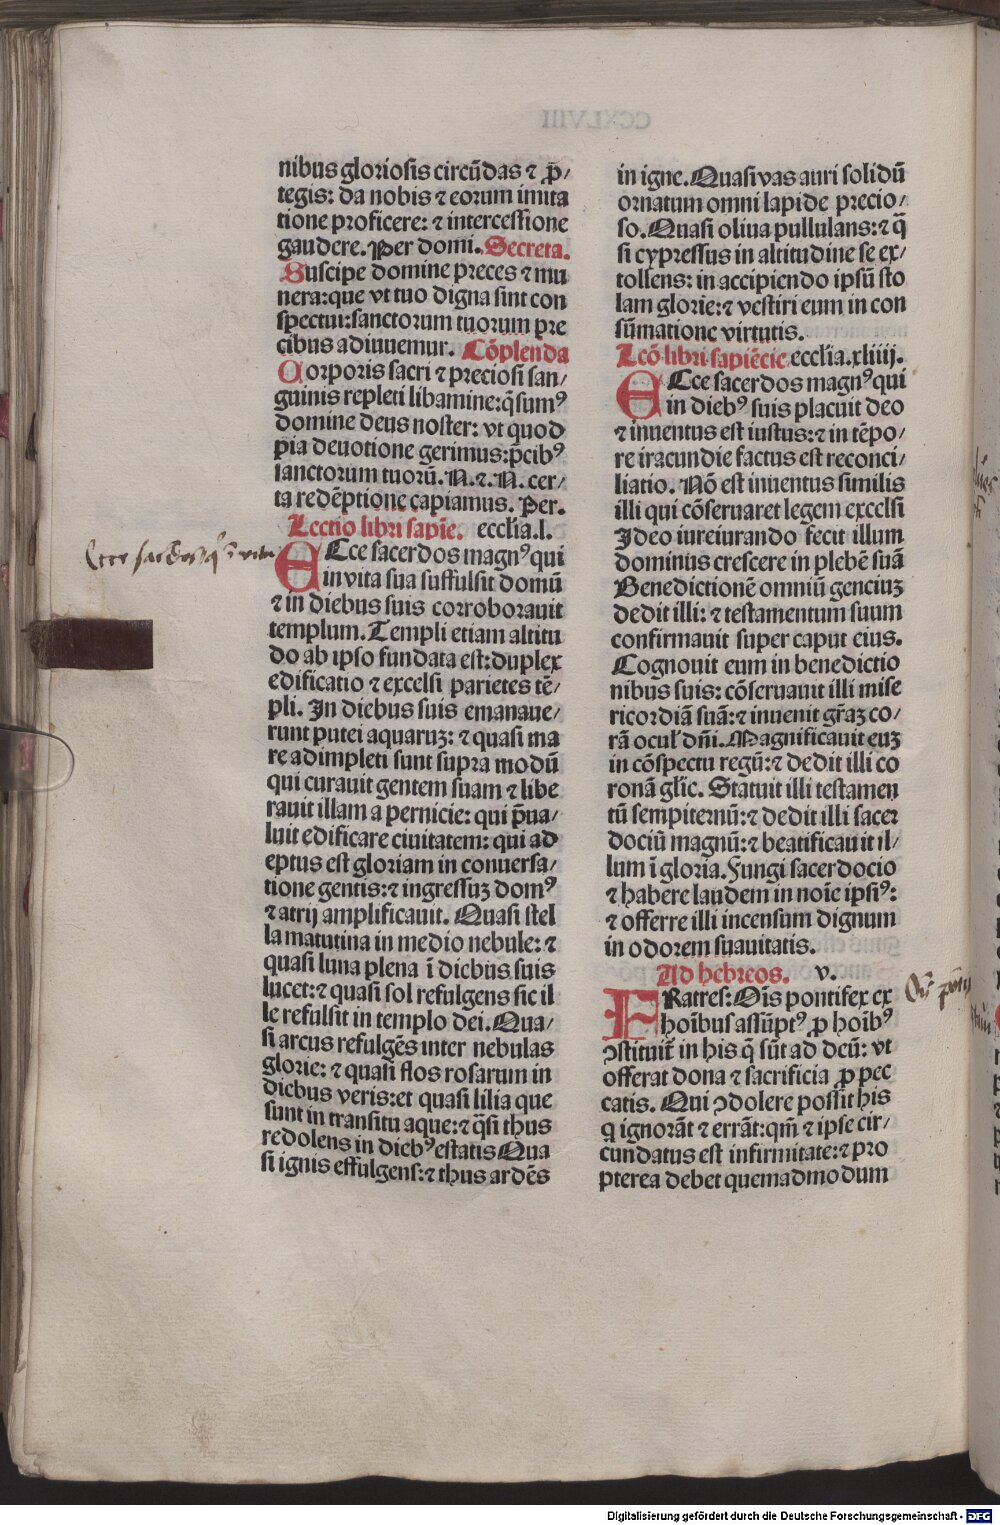 nibus gloriosis circūdas ⁊ p̄/
tegis: da nobis ⁊ eorum imita
tione proficere: ⁊ intercessione
gaudere. Per domi. Secreta.
Suscipe domine preces ⁊ mu
nera: que vt tuo digna sint con
spectui: sanctorum tuorum pre
cibus adiuuemur. Cōplenda
Corporis sacri ⁊ preciosi san/
guinis repleti libamine: q̄sumꝰ
domine deus noster: vt quod
pia deuotione gerimus: p̄cibꝰ
sanctorum tuorū. N. ⁊. N. cer/
ta redēptione capiamus. Per.
Lectio libri sapiē. eccl'ia. l.
Ecce sacerdos magnꝰ qui
in vita sua suffulsit domū
⁊ in diebus suis corroborauit
templum. Templi etiam altitu
do ab ipso fundata est: duplex
edificatio ⁊ excelsi parietes tē/
pli. In diebus suis emanaue/
runt putei aquaruꝫ: ⁊ quasi ma
re adimpleti sunt supra modū
qui curauit gentem suam ⁊ libe
rauit illam a pernicie: qui p̄ua/
luit edificare ciuitatem: qui ad
eptus est gloriam in conuersa/
tione gentis: ⁊ ingressuꝫ domꝰ
⁊ atrij amplificauit. Quasi stel
la matutina in medio nebule: ⁊
quasi luna plena ī diebus suis
lucet: ⁊ quasi sol refulgens sic il
le refulsit in templo dei. Qua/
si arcus refulgēs inter nebulas
glorie: ⁊ quasi flos rosarum in
diebus veris: et quasi lilia que
sunt in transitu aque: ⁊ q̄si thus
redolens in diebꝰ estatis Qua
si ignis effulgens: ⁊ thus ardēs
in igne. Quasi vas auri solidū
ornatum omni lapide precio/
so. Quasi oliua pullulans: ⁊ q̄
si cypressus in altitudine se ex/
tollens: in accipiendo ipsū sto
lam glorie: ⁊ vestiri eum in con
sūmatione virtutis.
Lcō libri sapiēcie eccl'ia. xliiij.
Ecce sacerdos magnꝰ qui
in diebꝰ suis placuit deo
⁊ inuentus est iustus: ⁊ in tēpo/
re iracundie factus est reconci/
liatio. Nō est inuentus similis
illi qui cōseruaret legem excelsi
Ideo iureiurando fecit illum
dominus crescere in plebē suā
Benedictionē omniū genciuꝫ
dedit illi: ⁊ testamentum suum
confirmauit super caput eius.
Cognouit eum in benedictio
nibus suis: cōseruauit illi mise
ricordiā suā: ⁊ inuenit gr̄aꝫ co/
rā ocul' dn̄i. Magnificauit euꝫ
in cōspectu regū: ⁊ dedit illi co
ronā gl'ie. Statuit illi testamen
tū sempiternū: ⁊ dedit illi sacer
dociū magnū: ⁊ beatificauit il/
lum ī gloria. Fungi sacerdocio
⁊ habere laudem in noīe ipsiꝰ:
⁊ offerre illi incensum dignum
in odorem suauitatis.
Ad hebreos. v.
FRatres: Oīs pontifex ex
hoībus assūptꝰ ꝓ hoībꝰ
ꝯstituit̄ in his q̄ sūt ad deū: vt
offerat dona ⁊ sacrificia ꝓ pec
catis. Qui ꝯdolere possit his
q ignorāt ⁊ errāt: qm̄ ⁊ ipse cir/
cundatus est infirmitate: ⁊ pro
pterea debet quemadmodum
Digitalisierung gefördert durch die Deutsche Forschungsgemeinschaft - DFG